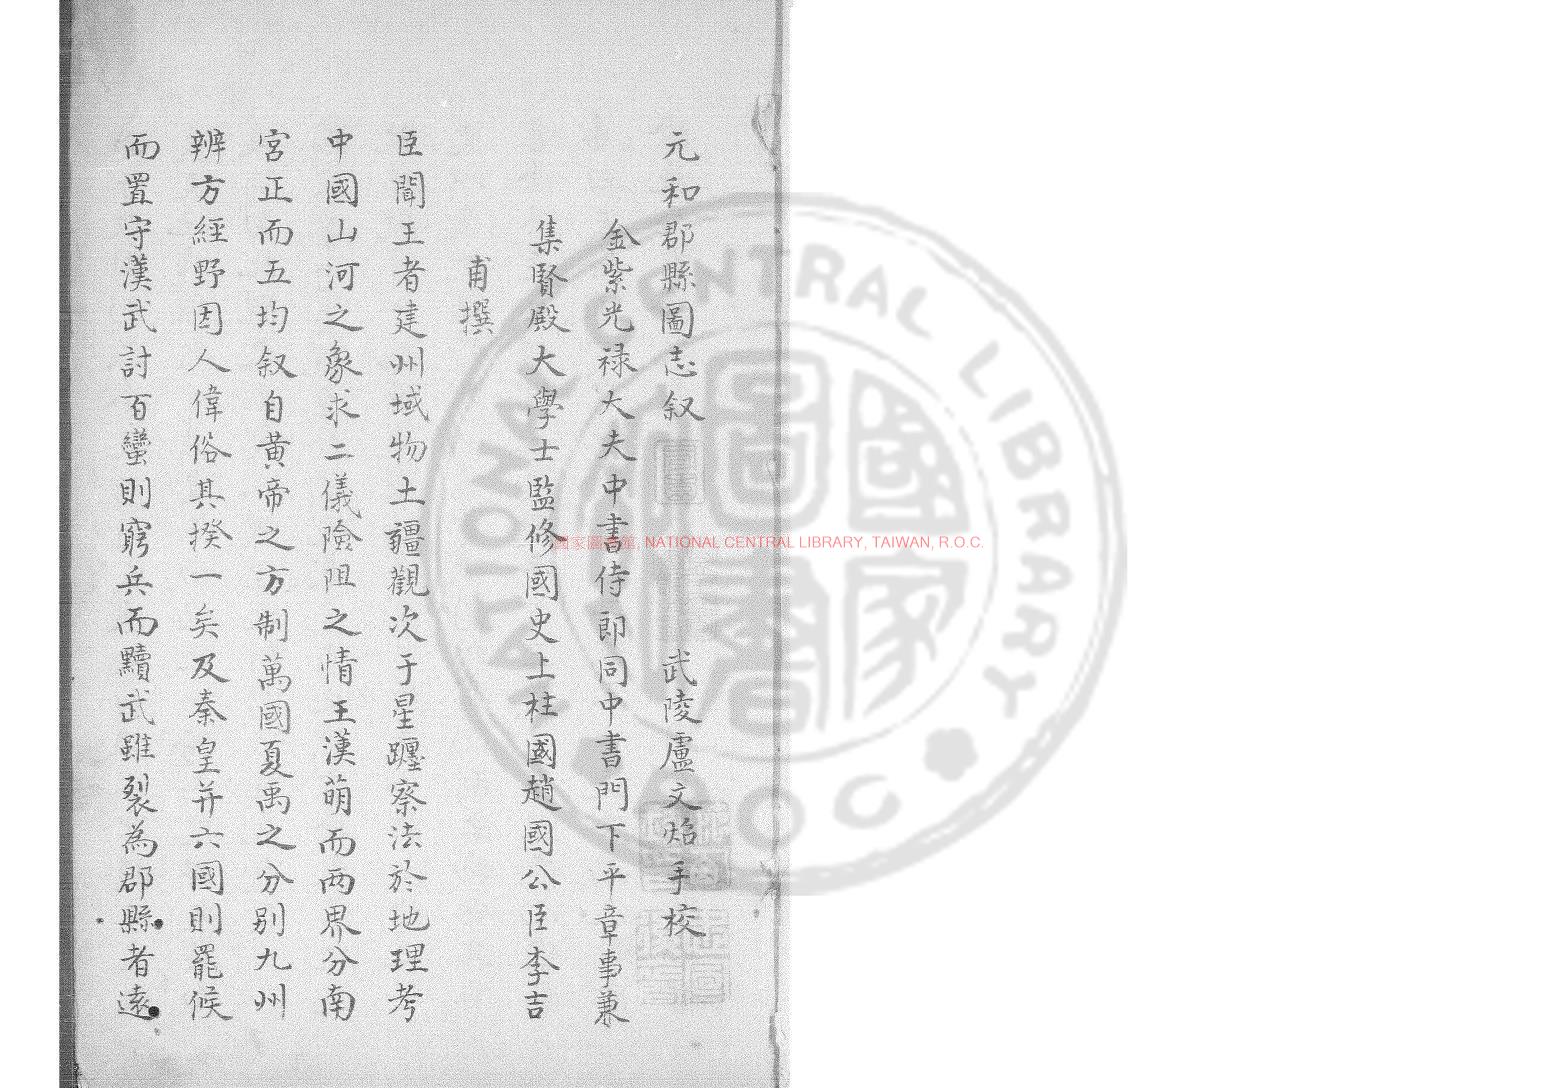 元和郡縣圖志叙 武陵盧文焰手校
金紫光禄大夫中書侍郎同中書門下平章事兼
集賢殿大學士監修國史上柱國趙國公臣李吉
甫撰
臣聞王者建州域物土疆觀次于星躔察法於地理考
中國山河之象求二儀險阻之情王漢萌而两界分南
宮正而五均叙自黄帝之方制萬國夏禹之分别九州
辨方經野因人偉俗其揆一矣及秦皇并六國則罷候
而置守漢武討百蠻則窮兵而黷武雖裂為郡縣者遠
國家圖書館, NATIONAL CENTRAL LIBRARY, TAIWAN, R.O.C.
NATIONAL CENTRAL LIBRARY
R.O.C.
國家圖書館